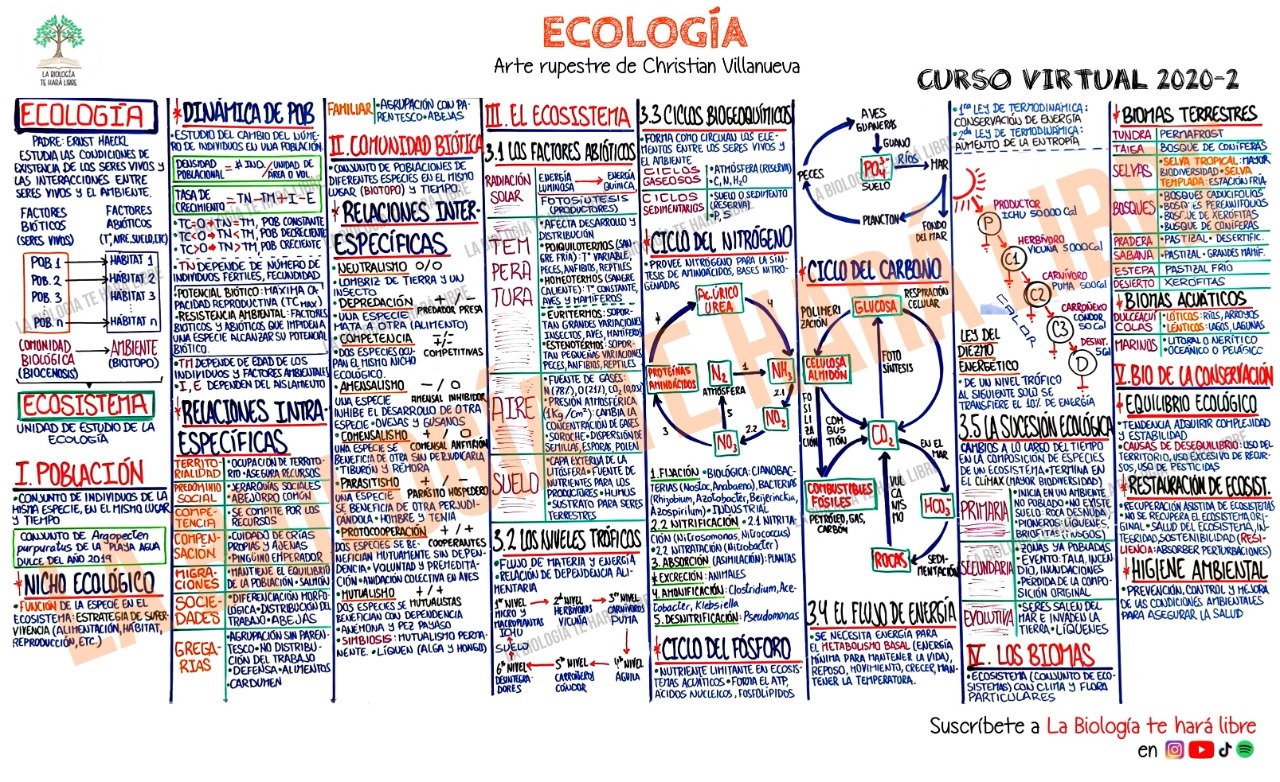 ECOLOGÍA
Arte rupestre de Christian Villanueva
CURSO VIRTUAL 2020-2
LA BIOLOGÍA
TE HARÁ LIBRE
ECOLOGÍA
PADRE: ERNST HAECKL
ESTUDIA LAS CONDICIONES DE
EXISTENCIA DE LOS SERES VIVOS Y
LAS INTERACCIONES ENTRE
SERES VIVOS Y EL AMBIENTE.
FACTORES BIÓTICOS (SERES VIVOS)
FACTORES ABIÓTICOS (T°, AIRE, SUELO, ETC)
POB. 1 HÁBITAT 1
POB. 2 HÁBITAT 2
POB. 3 HÁBITAT 3
POB. n HÁBITAT n
COMUNIDAD BIOLÓGICA (BIOCENOSIS)
AMBIENTE (BIOTOPO)
ECOSISTEMA
UNIDAD DE ESTUDIO DE LA
ECOLOGÍA
I. POBLACIÓN
• CONJUNTO DE INDIVIDUOS DE LA
MISMA ESPECIE, EN EL MISMO LUGAR
Y TIEMPO
CONJUNTO DE Argopecten
purpuratus DE LA "PLAYA AGUA
DULCE DEL AÑO 2019
NICHO ECOLÓGICO
• FUNCIÓN DE LA ESPECIE EN EL
ECOSISTEMA: ESTRATEGIA DE SUPER-
VIVENCIA (ALIMENTACIÓN, HÁBITAT,
REPRODUCCIÓN, ETC.)
* DINÁMICA DE POB
• ESTUDIO DEL CAMBIO DEL NÚME-
RO DE INDIVIDUOS EN UNA POBLACIÓN.
DENSIDAD POBLACIONAL = # IND./UNIDAD DE ÁREA O VOL.
TASA DE CRECIMIENTO = TN - TM + I - E
• TC=0 → TN=TM, POB CONSTANTE
TC<0 → TN<TM, POB DECRECIENTE
TC>0 → TN>TM, POB CRECIENTE
• TN DEPENDE DE NÚMERO DE
INDIVIDUOS FERTILES, FECUNDIDAD
• POTENCIAL BIÓTICO: MÁXIMA CA-
PACIDAD REPRODUCTIVA (TC máx)
• RESISTENCIA AMBIENTAL: FACTORES
BIOTICOS Y ABIÓTICOS QUE IMPIDEN A
UNA ESPECIE ALCANZAR SU POTENCIAL
BIÓTICO.
• TM DEPENDE DE EDAD DE LOS
INDIVIDUOS Y FACTORES AMBIENTALES
• I, E DEPENDEN DEL AISLAMIENTO
* RELACIONES INTRA-
ESPECÍFICAS
TERRITO-RIALIDAD • OCUPACIÓN DE TERRITO-
RIO • ASEGURA RECURSOS
PREDOMINIO SOCIAL • JERARQUÍAS SOCIALES
• ABEJORRO COMÚN
COMPE-TENCIA • SE COMPITE POR LOS
RECURSOS
COMPEN-SACIÓN • CUIDADO DE CRÍAS
PROPIAS Y AJENAS
• PINGÜINO EMPERADOR
MIGRA-CIONES • MANTIENE EL EQUILIBRIO
DE LA POBLACIÓN • SALMÓN
SOCIE-DADES • DIFERENCIACIÓN MORFO-
LÓGICA • DISTRIBUCIÓN DEL
TRABAJO • ABEJAS
GREGA-RIAS • AGRUPACIÓN SIN PAREN-
TESCO • NO DISTRIBU-
CIÓN DEL TRABAJO
• DEFENSA • ALIMENTOS
• CARDUMEN
FAMILIAR • AGRUPACIÓN CON PA-
RENTESCO • ABEJAS
II. COMUNIDAD BIÓTICA
• CONJUNTO DE POBLACIONES DE
DIFERENTES ESPECIES EN EL MISMO
LUGAR (BIOTOPO) Y TIEMPO.
* RELACIONES INTER-
ESPECÍFICAS
• NEUTRALISMO 0/0
LOMBRIZ DE TIERRA Y UN
INSECTO
• DEPREDACIÓN +/-
UNA ESPECIE PREDADOR PRESA
MATA A OTRA (ALIMENTO)
• COMPETENCIA +/-
DOS ESPECIES OCU- COMPETITIVAS
PAN EL MISMO NICHO
ECOLÓGICO.
• AMENSALISMO -/0
UNA ESPECIE AMENSAL INHIBIDOR
INHIBE EL DESARROLLO DE OTRA
ESPECIE • OVEJAS Y GUSANOS
• COMENSALISMO +/0
UNA ESPECIE SE COMENSAL ANFITRIÓN
BENEFICIA DE OTRA SIN PERJUDICARLA
• TIBURÓN Y REMORA
• PARASITISMO +/-
UNA ESPECIE PARÁSITO HOSPEDERO
SE BENEFICIA DE OTRA PERJUDI-
CÁNDOLA • HOMBRE Y TENIA
• PROTOCOOPERACIÓN +/+
DOS ESPECIES SE BE- COOPERANTES
NEFICIAN MUTUAMENTE SIN DEPEN-
DENCIA • VOLUNTAD Y PREMEDITA-
CIÓN • ANIDACIÓN COLECTIVA EN AVES
• MUTUALISMO +/+
DOS ESPECIES SE MUTUALISTAS
BENEFICIAN CON DEPENDENCIA
• ANEMONA Y PEZ PAYASO
• SIMBIOSIS: MUTUALISMO PERMA-
NENTE. • LÍQUEN (ALGA Y HONGO)
III. EL ECOSISTEMA
3.1 LOS FACTORES ABIÓTICOS
RADIACIÓN SOLAR
ENERGÍA LUMINOSA → ENERGÍA QUÍMICA
FOTOSÍNTESIS
(PRODUCTORES)
TEMPERATURA
• AFECTA DESARROLLO Y
DISTRIBUCIÓN
• POIQUILOTERMOS (SAN-
GRE FRÍA): T° VARIABLE,
PECES, ANFIBIOS, REPTILES
• HOMEOTERMOS (SANGRE
CALIENTE): T° CONSTANTE,
AVES Y MAMÍFEROS
• EURITERMOS: SOPOR-
TAN GRANDES VARIACIONES
INSECTOS, AVES, MAMÍFEROS
• ESTENOTERMOS: SOPOR-
TAN PEQUEÑAS VARIACIONES
PECES, ANFIBIOS, REPTILES
AIRE
• FUENTE DE GASES:
N (78%), O (21%), CO₂ (0,03%)
• PRESIÓN ATMOSFÉRICA
(1Kg/cm²): CAMBIA LA
CONCENTRACIÓN DE GASES
• SOROCHE • DISPERSIÓN DE
SEMILLAS, ESPORAS, POLEN
SUELO
• CAPA EXTERNA DE LA
LITÓSFERA • FUENTE DE
NUTRIENTES PARA LOS
PRODUCTORES • HUMUS
• SUSTRATO PARA SERES
TERRESTRES
3.2 LOS NIVELES TRÓFICOS
• FLUJO DE MATERIA Y ENERGÍA
• RELACIÓN DE DEPENDENCIA ALI-
MENTARIA
1° NIVEL MICRO Y MACROPLANTAS ICHU
2° NIVEL HERBÍVOROS VICUÑA
3° NIVEL CARNÍVOROS PUMA
SUELO
6° NIVEL DESINTEGRADORES
5° NIVEL CARROÑEROS CÓNDOR
4° NIVEL ÁGUILA
3.3 CICLOS BIOGEOQUÍMICOS
• FORMA COMO CIRCULAN LOS ELE-
MENTOS ENTRE LOS SERES VIVOS Y
EL AMBIENTE
CICLOS GASEOSOS • ATMÓSFERA (RESERVA)
• C, N, H₂O
CICLOS SEDIMENTARIOS • SUELO O SEDIMENTO
(RESERVA)
• P, S
* CICLO DEL NITRÓGENO
• PROVEE NITRÓGENO PARA LA SÍN-
TESIS DE AMINOÁCIDOS, BASES NITRO-
GENADAS
AC. ÚRICO
UREA
PROTEÍNAS
AMINOÁCIDOS
N₂
ATMÓSFERA
NH₃
NO₂
NO₃
1
2.1
2.2
3
4
5
1. FIJACIÓN: • BIOLÓGICA: CIANOBAC-
TERIAS (Nostoc, Anabaena), BACTERIAS
(Rhizobium, Azotobacter, Beijerinckia,
Azospirilum) • INDUSTRIAL
2.2 NITRIFICACIÓN: • 2.1 NITRITA-
CIÓN (Nitrosomonas, Nitrococcus)
• 2.2 NITRATACIÓN (Nitrobacter)
3. ABSORCIÓN (ASIMILACIÓN): PLANTAS
* EXCRECIÓN: ANIMALES
4. AMONIFICACIÓN: Clostridium, Ace-
tobacter, Klebsiella
5. DESNITRIFICACIÓN: Pseudomonas
* CICLO DEL FÓSFORO
• NUTRIENTE LIMITANTE EN ECOSIS-
TEMAS ACUÁTICOS • FORMA EL ATP,
ÁCIDOS NUCLEICOS, FOSFOLÍPIDOS
AVES GUANERAS
GUANO
PO₄³⁻
SUELO
RÍOS
MAR
PECES
PLANCTON
FONDO DEL MAR
* CICLO DEL CARBONO
POLIMERIZACIÓN
GLUCOSA
RESPIRACIÓN CELULAR
CELULOSA
ALMIDÓN
FOTOSÍNTESIS
FOSILIZACIÓN
COMBUSTIÓN
CO₂
EN EL MAR
COMBUSTIBLES
FÓSILES
PETRÓLEO, GAS,
CARBÓN
VULCANISMO
HCO₃⁻
ROCAS
SEDIMENTACIÓN
3.4 EL FLUJO DE ENERGÍA
• SE NECESITA ENERGÍA PARA
EL METABOLISMO BASAL (ENERGÍA
MÍNIMA PARA MANTENER LA VIDA),
REPOSO, MOVIMIENTO, CRECER, MAN-
TENER LA TEMPERATURA.
• 1ra LEY DE TERMODINÁMICA:
CONSERVACIÓN DE ENERGÍA
• 2da LEY DE TERMODINÁMICA:
AUMENTO DE LA ENTROPÍA
PRODUCTOR
ICHU 50000 Cal
P
HERBÍVORO
VICUÑA 5000 Cal
C1
CARNÍVORO
PUMA 500 Cal
C2
CARROÑERO
CONDOR
50 Cal
C3
DESINT.
5 Cal
D
CALOR
LEY DEL
DIEZMO
ENERGÉTICO
• DE UN NIVEL TRÓFICO
AL SIGUIENTE SOLO SE
TRANSFIERE EL 10% DE ENERGÍA
3.5 LA SUCESIÓN ECOLÓGICA
CAMBIOS A LO LARGO DEL TIEMPO
EN LA COMPOSICIÓN DE ESPECIES
DE UN ECOSISTEMA • TERMINA EN
EL CLÍMAX (MAYOR BIODIVERSIDAD)
PRIMARIA
• INICIA EN UN AMBIENTE
NO POBLADO • NO EXISTE
SUELO, ROCA DESNUDA
• PIONEROS: LÍQUENES,
BRIOFITAS (MUSGOS)
SECUNDARIA
• ZONAS YA POBLADAS
• EVENTO: TALA, INCEN-
DIO, INUNDACIONES
• PÉRDIDA DE LA COMPO-
SICIÓN ORIGINAL
EVOLUTIVA
• SERES SALEN DEL
MAR E INVADEN LA
TIERRA • LÍQUENES
IV. LOS BIOMAS
• ECOSISTEMA (CONJUNTO DE ECO-
SISTEMAS) CON CLIMA Y FLORA
PARTICULARES
* BIOMAS TERRESTRES
TUNDRA PERMAFROST
TAIGA BOSQUE DE CONÍFERAS
SELVAS • SELVA TROPICAL: MAYOR
BIODIVERSIDAD • SELVA
TEMPLADA: ESTACIÓN FRÍA
BOSQUES • BOSQUES CADUCIFOLIOS
• BOSQUES PERENNIFOLIOS
• BOSQUE DE XEROFITAS
• BOSQUE DE CONÍFERAS
PRADERA • PASTIZAL • DESERTIFIC.
SABANA • PASTIZAL • GRANDES MAMÍF.
ESTEPA PASTIZAL FRÍO
DESIERTO XEROFITAS
* BIOMAS ACUÁTICOS
DULCEACUÍCOLAS • LÓTICOS: RÍOS, ARROYOS
• LÉNTICOS: LAGOS, LAGUNAS
MARINOS • LITORAL O NERÍTICO
• OCEÁNICO O PELÁGICO
V. BIO DE LA CONSERVACIÓN
* EQUILIBRIO ECOLÓGICO
• TENDENCIA ADQUIRIR COMPLEJIDAD
Y ESTABILIDAD
• CAUSAS DE DESEQUILIBRIO: USO DEL
TERRITORIO, USO EXCESIVO DE RECUR-
SOS, USO DE PESTICIDAS
* RESTAURACIÓN DE ECOSIST.
• RECUPERACIÓN ASISTIDA DE ECOSISTEMAS
• NO SE RECUPERA EL ECOSISTEMA ORI-
GINAL • SALUD DEL ECOSISTEMA, IN-
TEGRIDAD, SOSTENIBILIDAD (RESI-
LIENCIA: ABSORBER PERTURBACIONES)
* HIGIENE AMBIENTAL
• PREVENCIÓN, CONTROL Y MEJORA
DE LAS CONDICIONES AMBIENTALES
PARA ASEGURAR LA SALUD
LA BIOLOGÍA TE HARÁ LIBRE
Suscríbete a La Biología te hará libre
en